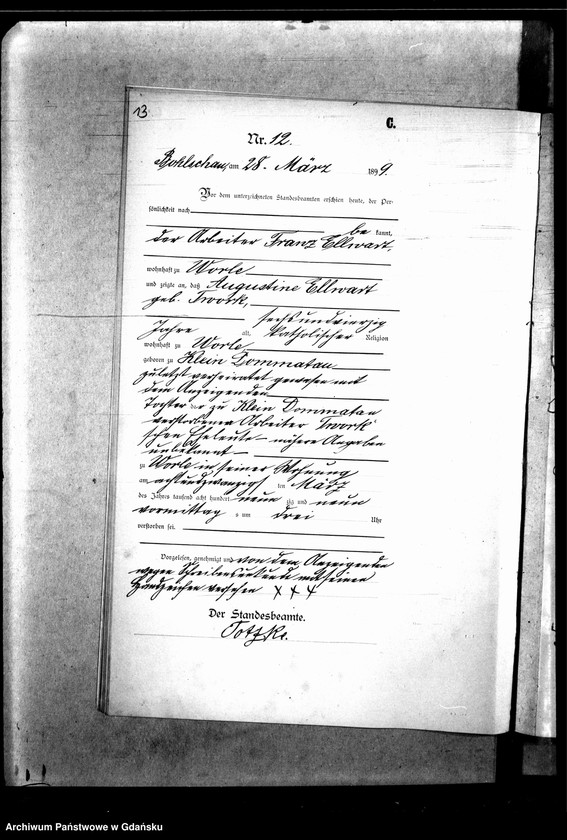 13
C.
Nr. 12.
Bohlschau, am 28. März 1899.
Vor dem unterzeichneten Standesbeamten erschien heute, der Per-
sönlichkeit nach
be kannt,
der Arbeiter Franz Ellwart,
wohnhaft zu Worle
und zeigte an, daß Augustine Ellwart
geb. Twork,
sechsundvierzig
Jahre alt, katholischer Religion
wohnhaft zu Worle
geboren zu Klein Dommatau
zuletzt verheiratet gewesen mit
dem Anzeigenden
Tochter der zu Klein Dommatau
verstorbenen Arbeiter Twork'
schen Eheleute - nähere Angaben
unbekannt -
zu Worle in seiner Wohnung
am achtundzwanzigsten März
des Jahres tausend acht hundert neun zig und neun
vormittag s um drei Uhr
verstorben sei.
Vorgelesen, genehmigt und von dem Anzeigenden
wegen Schreibensunkunde mit seinem
Handzeichen versehen X X X
Der Standesbeamte.
Totzke.
Archiwum Państwowe w Gdańsku